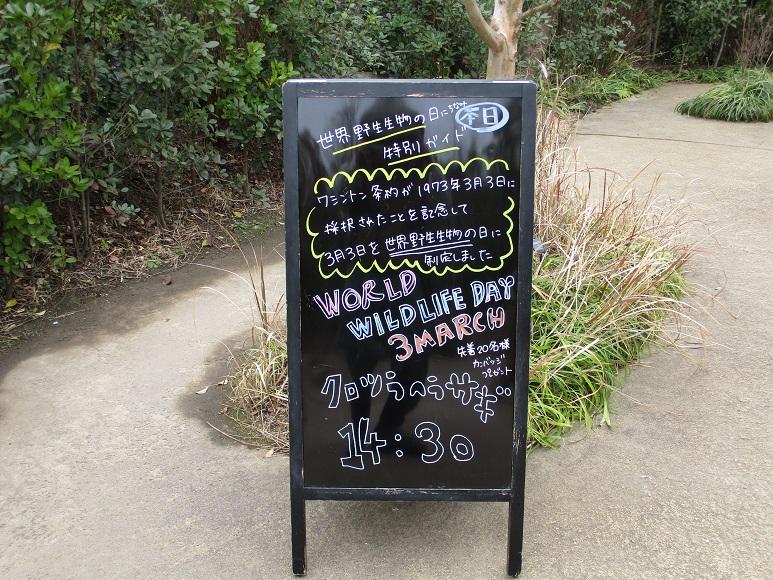 世界野生生物の日にちなみ 本日
特別ガイド
ワシントン条約が1973年3月3日に
採択されたことを記念して
3月3日を世界野生生物の日に
制定しました
WORLD
WILDLIFE DAY
3 MARCH
先着20名様
カンバッジ
プレゼント
クロツラヘラサギ
14:30